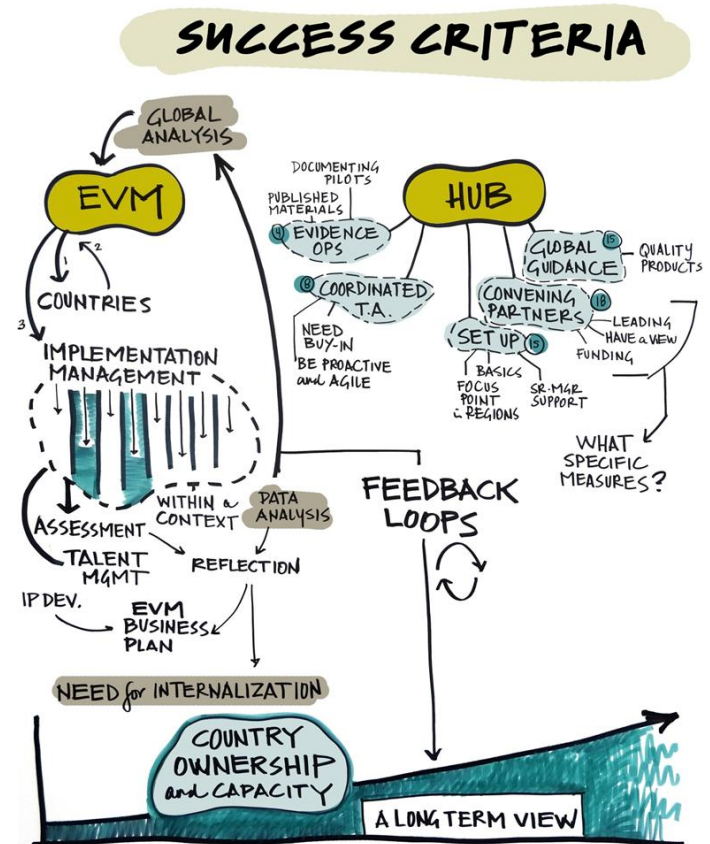 SUCCESS CRITERIA
GLOBAL
ANALYSIS
EVM
1
2
COUNTRIES
3
IMPLEMENTATION
MANAGEMENT
WITHIN a
CONTEXT
DATA
ANALYSIS
ASSESSMENT
TALENT
MGMT
REFLECTION
IP DEV.
EVM
BUSINESS
PLAN
NEED for INTERNALIZATION
COUNTRY
OWNERSHIP
and CAPACITY
HUB
DOCUMENTING
PILOTS
PUBLISHED
MATERIALS
EVIDENCE
OPS
COORDINATED
T.A.
NEED
BUY-IN
BE PROACTIVE
and AGILE
GLOBAL
GUIDANCE
15
QUALITY
PRODUCTS
CONVENING
PARTNERS
18
LEADING
HAVE a VIEW
FUNDING
SET UP
15
BASICS
FOCUS
POINT
in REGIONS
SR. MGR
SUPPORT
WHAT
SPECIFIC
MEASURES?
FEEDBACK
LOOPS
A LONG TERM VIEW